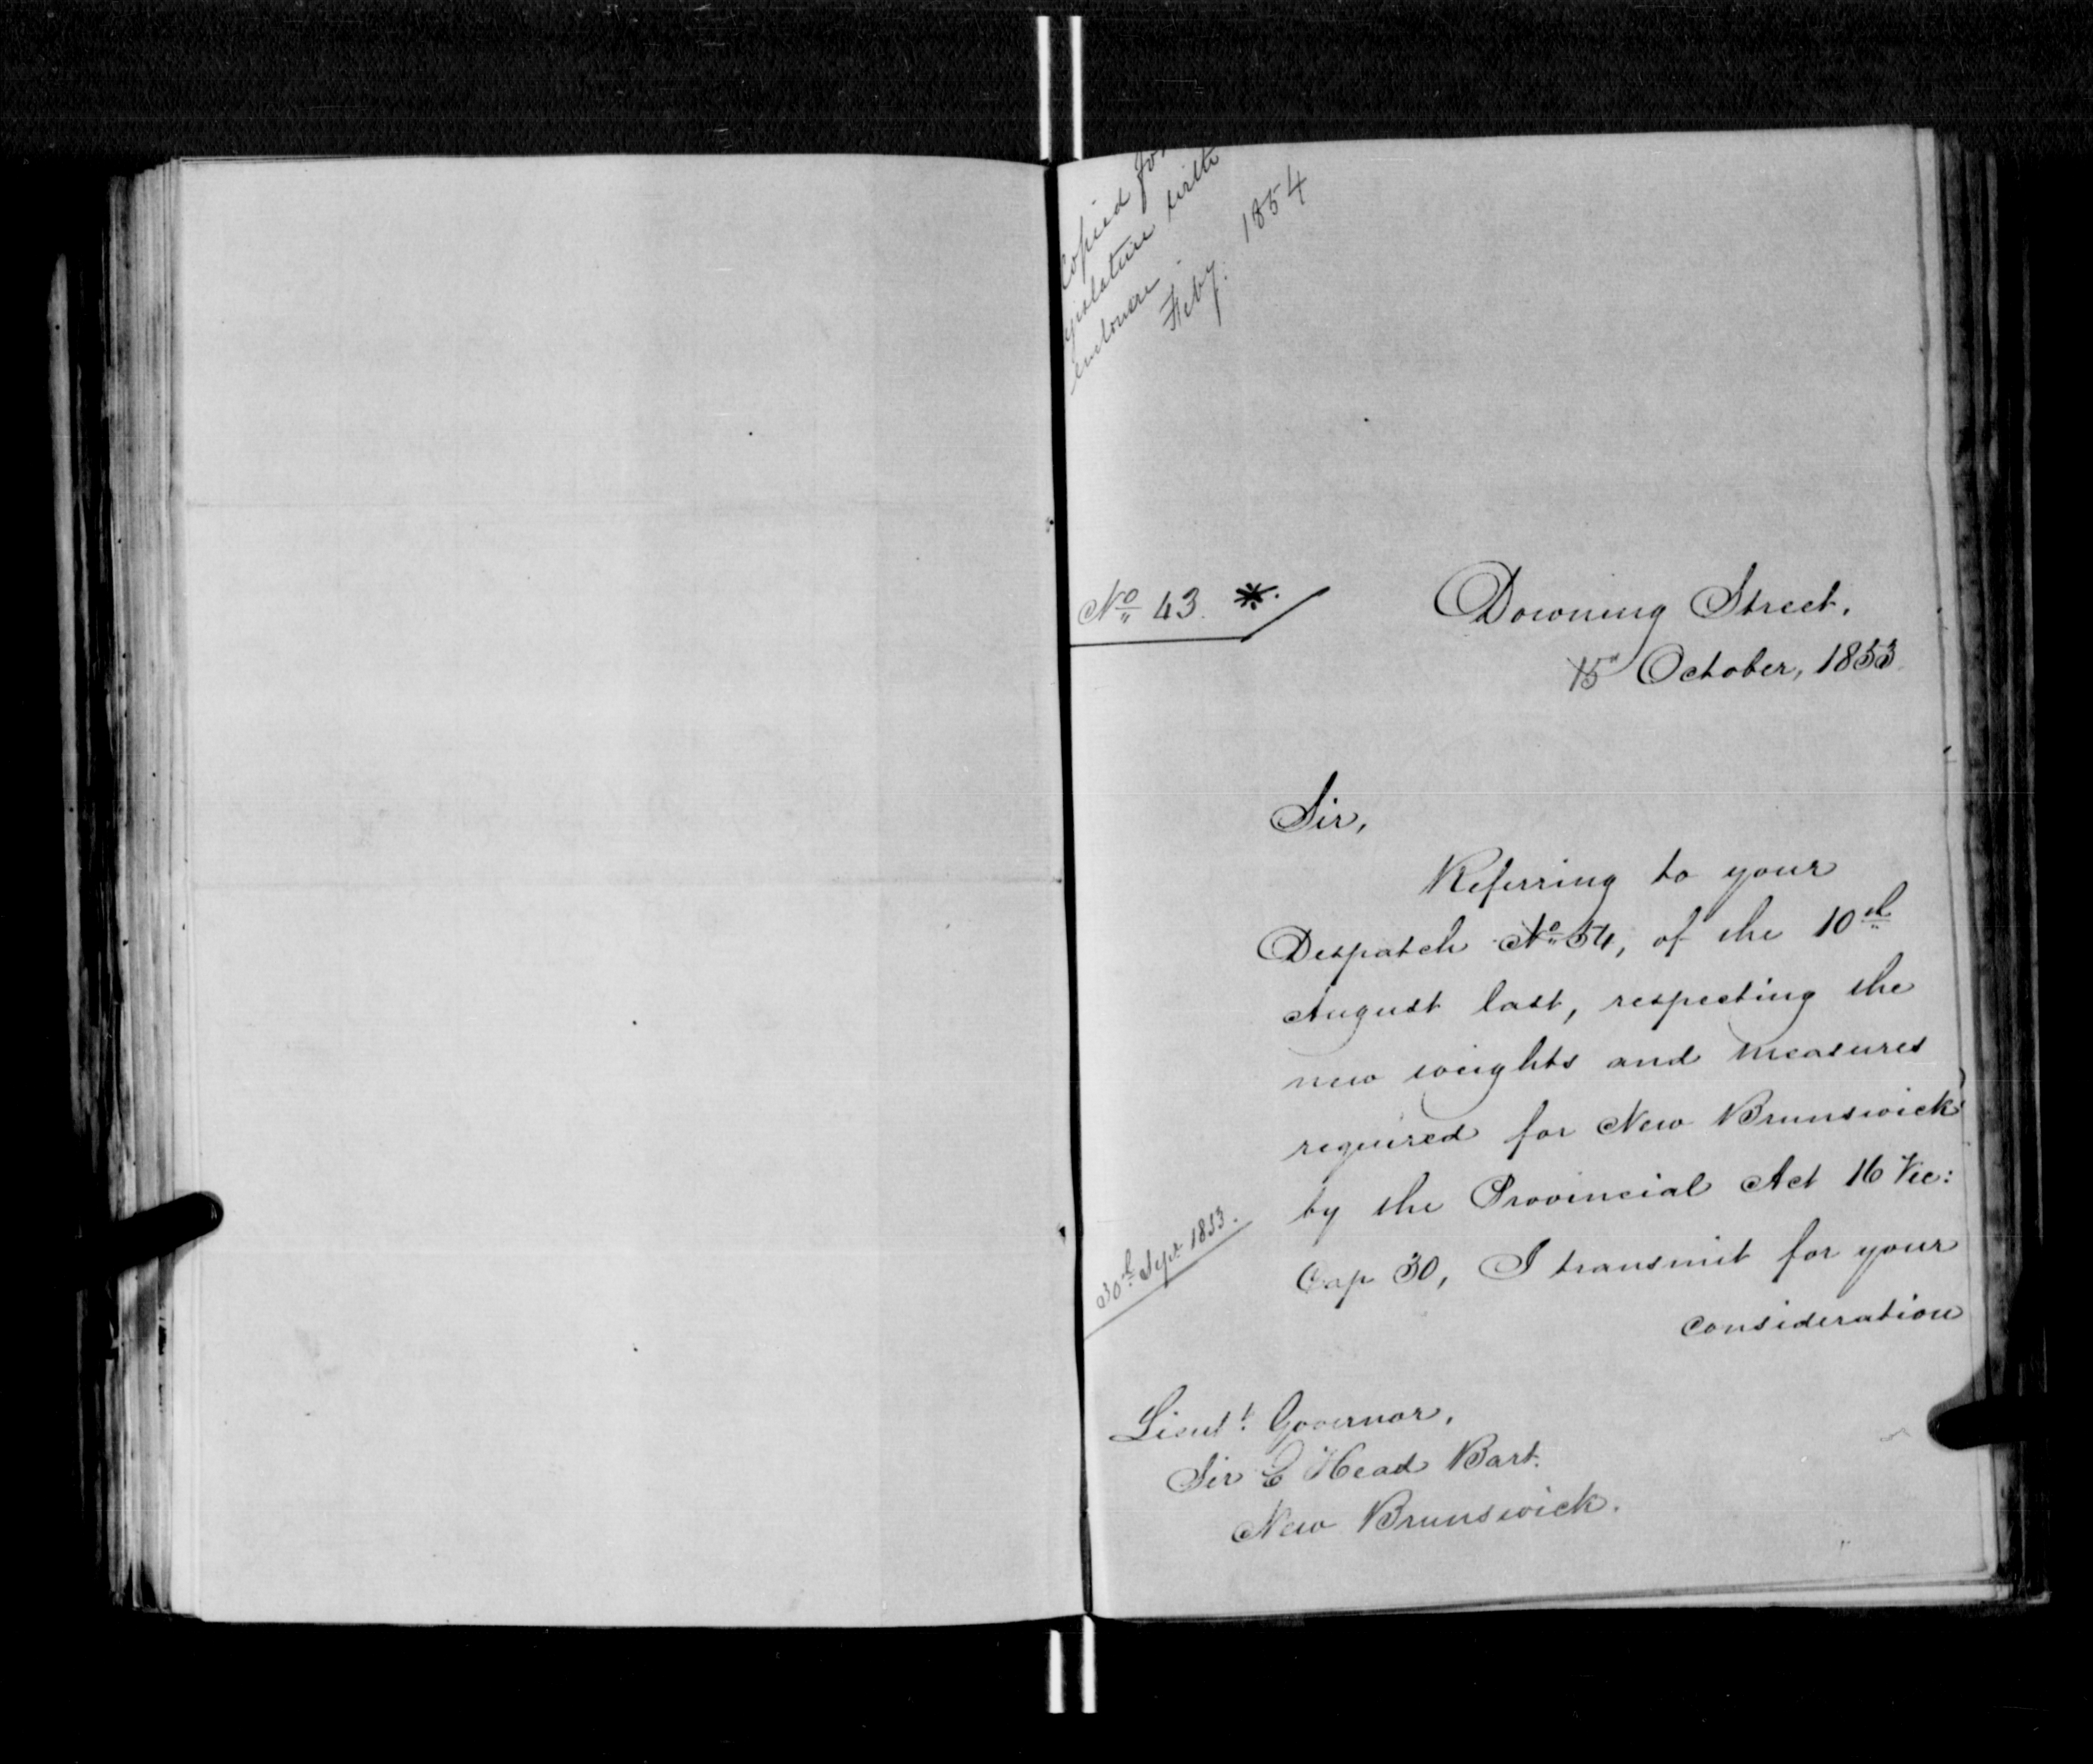 Copied for
gislature with
enclosure
Feby. 1854
No 43. *
Downing Street,
15 October, 1853
Sir,
Referring to your
Despatch No 54, of the 10th
August last, respecting the
new weights and measures
required for New Brunswick
by the Provincial Act 16 Vic:
Cap 30, I transmit for your
consideration
30th Sept 1853.
Lieut. Governor,
Sir E Head Bart.
New Brunswick.